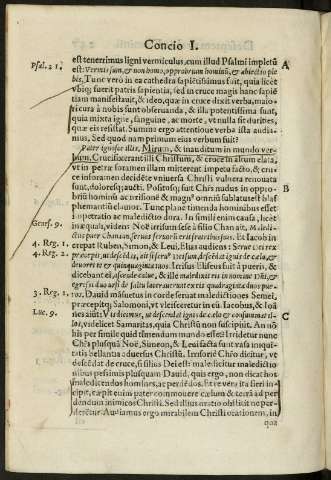 Concio I.
est tenerrimus ligni vermiculus, cum illud Psalmi impletũ
Psal. 21.
est: Vermis sum, & non homo, opprobrium hominũ, & abiectio ple
A
bis. Tunc verò in ea cathedra sapiẽtissimus fuit, quia licet
vbiq; fuerit patris sapientia, sed in cruce magis hanc sapiẽ
tiam manifestauit, & ideo, quæ in cruce dixit verba, maio-
ri cura à nobis sunt obseruanda, & illa potentissima sunt,
quia mixta igne, sanguine, ac morte, vt nulla sit durities,
quæ eis resistat. Summa ergo attentione verba ista audia-
mus. Sed quod nam primum eius verbum fuit?
Pater ignosce illis. Mirum, & inauditum in mundo ver-
bum. Crucifixerant illi Christum, & cruce in altum elata,
in petræ foramen illam miserunt impetu facto, & cru-
ce in foramen decidẽte vniuersa Christi vulnera renouata
sunt, dolores q; aucti. Positusq; fuit Chr̃s nudus in oppro-
B
briũ hominũ ac irrisionẽ & magis omniũ sublatus est blas
phemantiũ clamor. Tunc planè timenda hominibus esset
impetratio ac maledictio dura. In simili enim causa, licet
Genes. 9.
inæquali, videns Noë irrisum sese à filio Chan ait,
puer Chanaan, seruus seruorũ erit fratribus suis. Et Iacob in
4. Reg. 1.
crepat Ruben, Simon, & Leui, Elias audiens:
4. Reg. 2.
& quinquaginta tuos. Irrisus Eliseus fuit à pueris, &
dicebant ei, ascende calue, & ille maledixit eis in nomine Dñi, &
egressi duo vrsi de saltu lacerauerunt ex eis quadraginta duos pue-
3. Reg. 2.
ros. Dauid mãsuetus in corde seruat maledictiones Semei,
præcepitq; Salomoni, vt vlcisceretur in eũ. Iacobus, & Ioã
Luc. 9.
nes aiũt: Vis dicimus, ut descendat ignis de cælo & consummat il-
C
los, videlicet Samaritas, quia Christũ non suscipiũt. An nõ
his per simile quid timendum mundo esset? Irridetur nunc
Chr̃s plusquã Noë, Simeon, & Leui facta sunt vasa iniqui-
tatis bellantia aduersus Christũ. Irrisoriè Chr̃o dicitur, vt
descẽdat de cruce, si filius Dei est: maleficitur maledictio
nibus pessimis plusquam Dauid, quis ergo, non dicat hos
maledicendos homines, ac perdẽdos. Et re vera ita fieri in-
cipit, cœpit enim pater commouere cælum & terrã ad per
dendum inimicos Christi. Sed illius oratio obstitit ne per-
deretur. Audiamus ergo mirabilem Christi orationem, in
qua